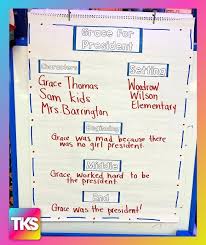 Grace For
President
Characters
Setting
Grace Thomas
Sam Kids
Mrs. Barrington
Woodrow
Wilson
Elementary
Beginning
Grace was mad because there
was no girl president.
Middle
Grace worked hard to be
the president.
End
Grace was the president!
TKS